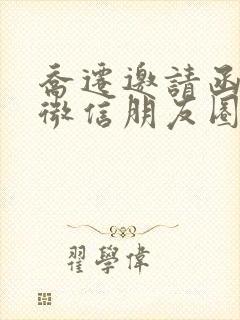 喬遷邀請函
微信朋友圈
翟學偉